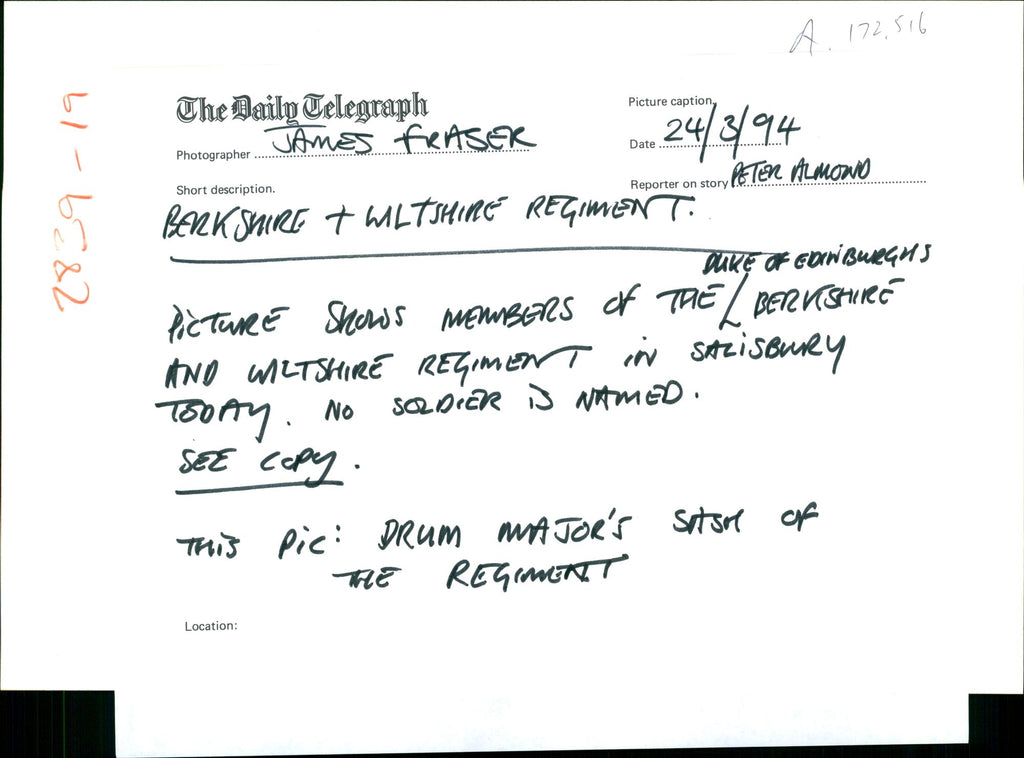 A. 172,516
The Daily Telegraph
Picture caption.
Photographer JAMES FRASER
Date 24/3/94
Short description.
Reporter on story PETER ALMOND
BERKSHIRE + WILTSHIRE REGIMENT.
DUKE OF EDINBURGH'S
PICTURE SHOWS MEMBERS OF THE BERKSHIRE
AND WILTSHIRE REGIMENT IN SALISBURY
TODAY. NO SOLDIER IS NAMED.
SEE COPY.
THIS PIC: DRUM MAJOR'S SASH OF
THE REGIMENT
Location:
2839-19